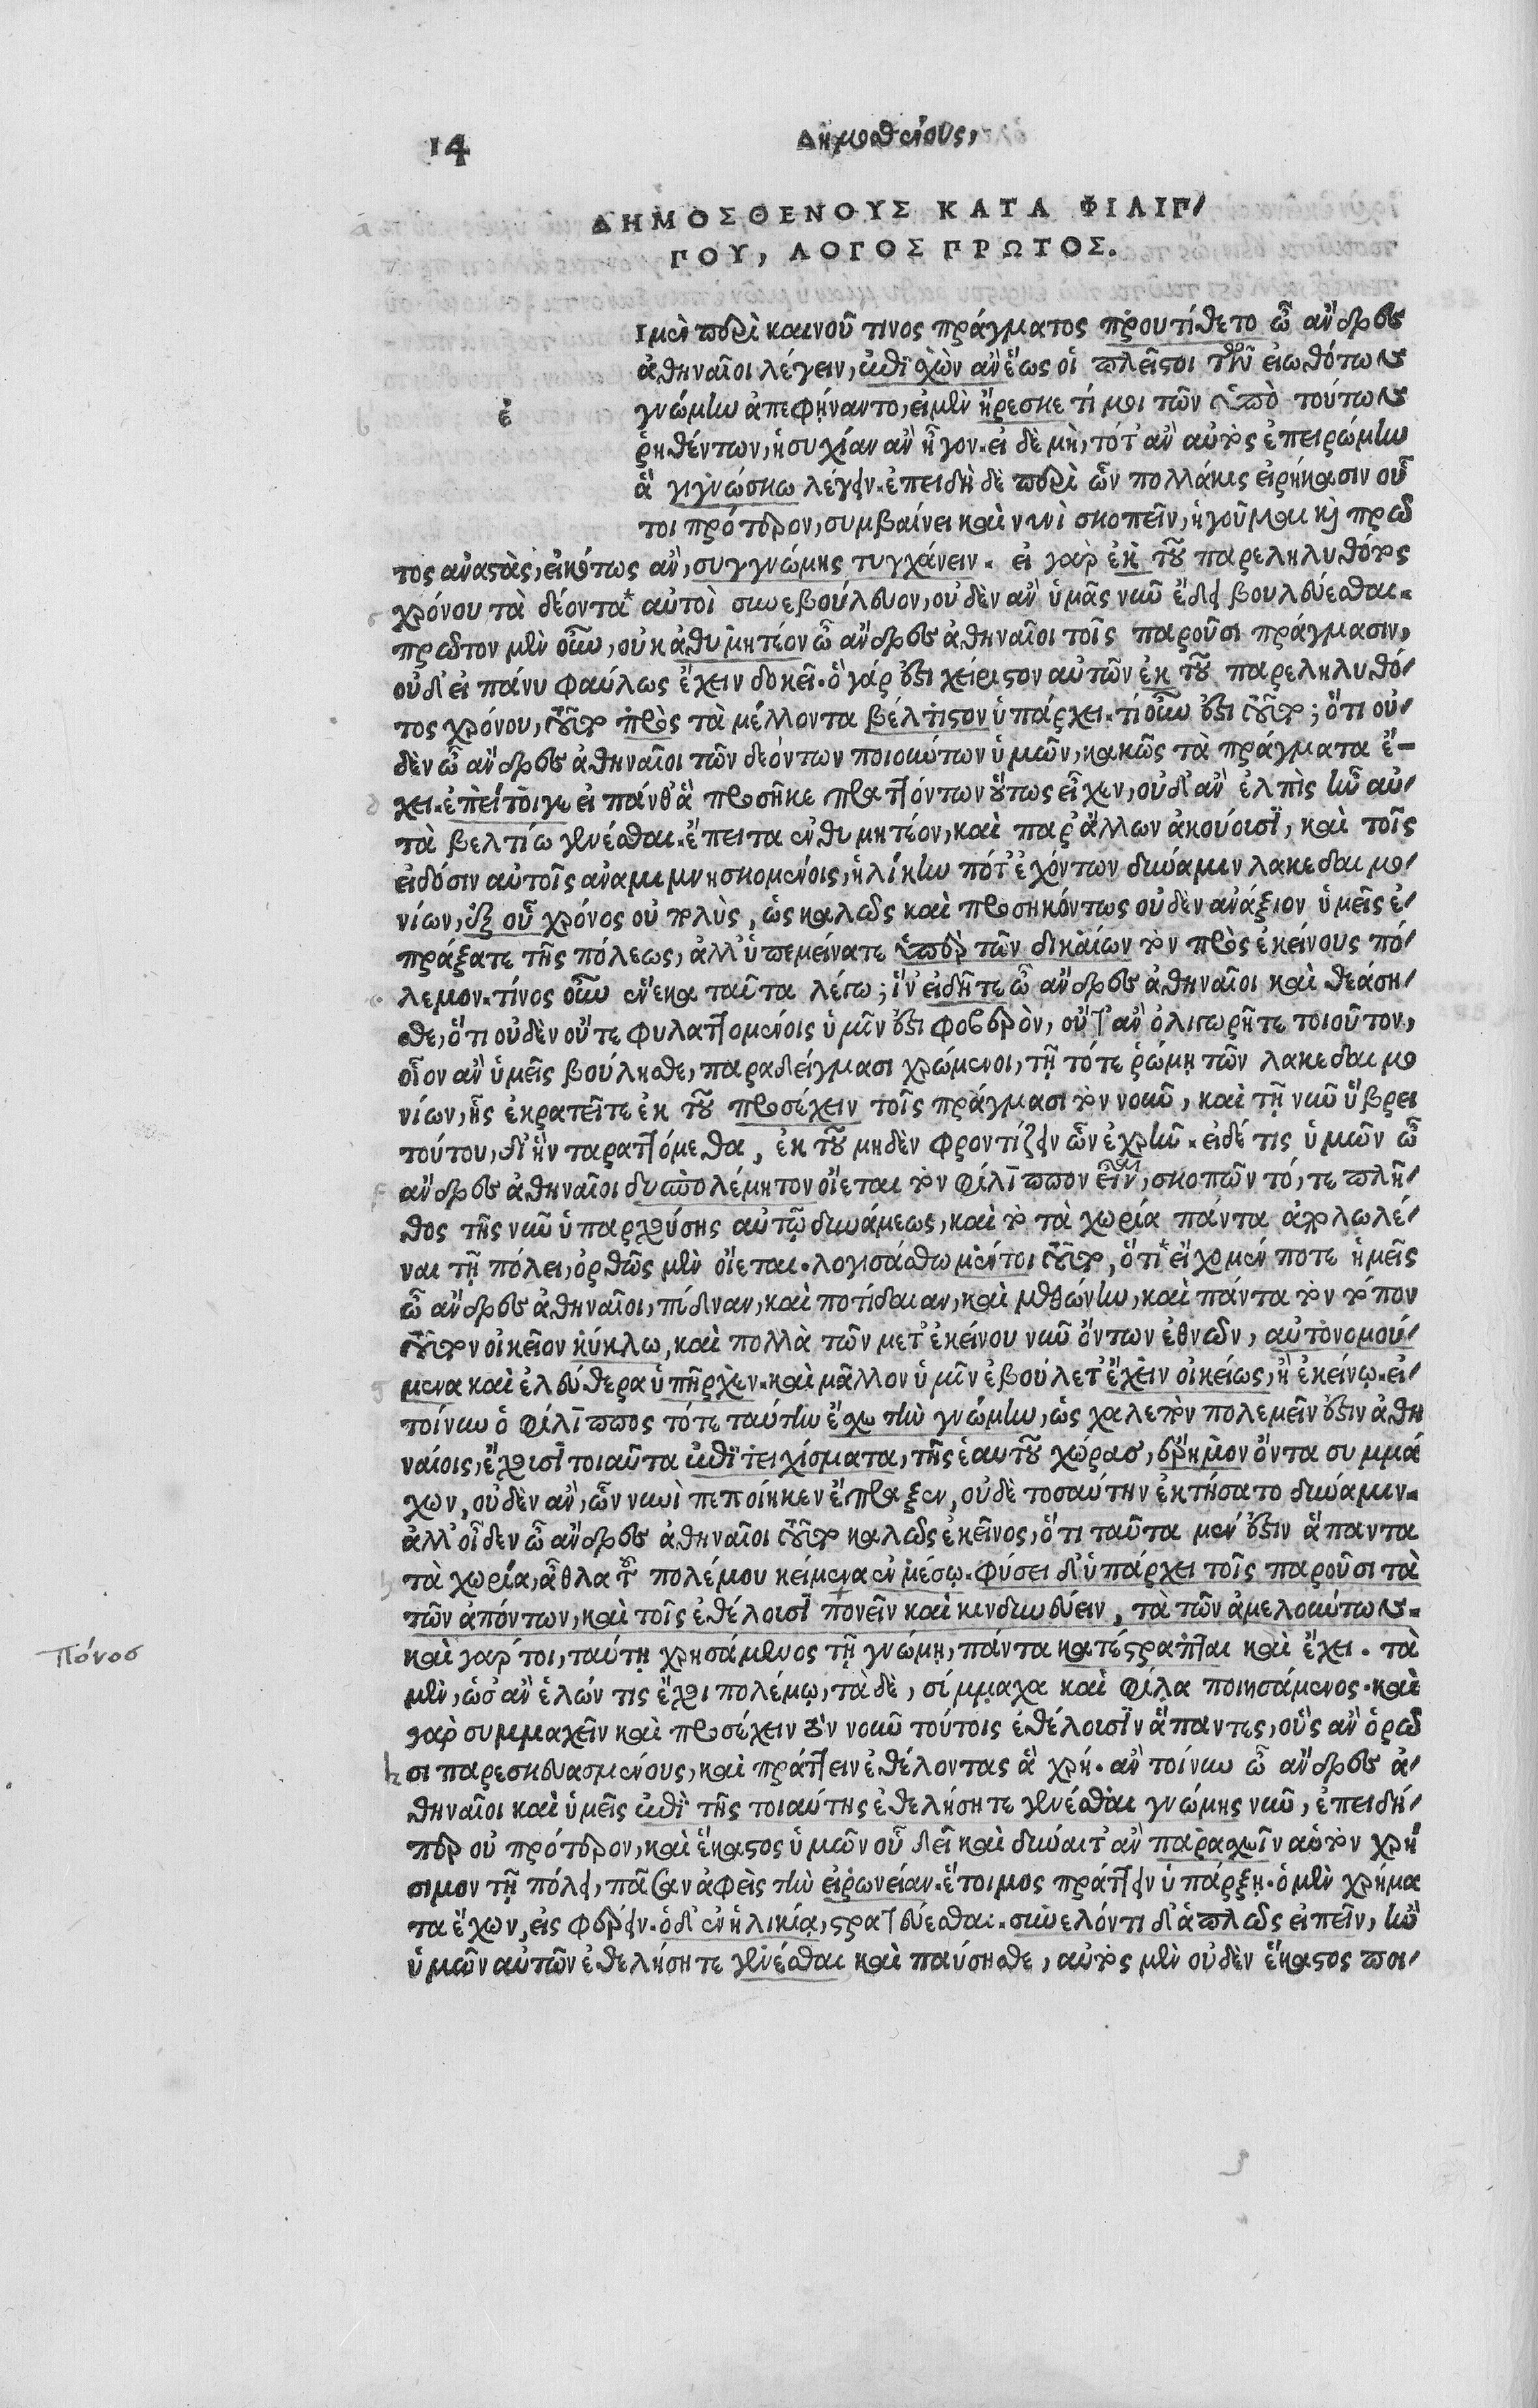 14
Δημοσθένους,
ΔΗΜΟΣΘΕΝΟΥΣ ΚΑΤΑ ΦΙΛΙΠ/
ΠΟΥ, ΛΟΓΟΣ ΠΡΩΤΟΣ.
ἐ
Ι μὲν περὶ καινοῦ τινος πράγματος προυτίθετο ὦ ἄνδρες
ἀθηναῖοι λέγειν, ἐπιχὼν ἂν ἕως οἱ πλεῖστοι τῶν εἰωθότων
γνώμην ἀπεφήναντο, εἰ μὲν ἤρεσκε τί μοι τῶν ὑπὸ τούτων
ῥηθέντων, ἡσυχίαν ἂν ἦγον. εἰ δὲ μὴ, τότ' ἂν αὐτὸς ἐπειρώμην
ἃ γιγνώσκω λέγειν. ἐπειδὴ δὲ περὶ ὧν πολλάκις εἰρήκασιν οὗ
τοι πρότερον, συμβαίνει καὶ νυνὶ σκοπεῖν, ἡγοῦμαι καὶ πρῶ
τος ἀναστὰς, εἰκότως ἂν, συγγνώμης τυγχάνειν. εἰ γὰρ ἐκ τοῦ παρεληλυθότος
χρόνου τὰ δέοντα* αὐτοὶ συνεβούλευον, οὐδὲν ἂν ὑμᾶς νῦν ἔδει βουλεύεσθαι.
πρῶτον μὲν οὖν, οὐκ ἀθυμητέον ὦ ἄνδρες ἀθηναῖοι τοῖς παροῦσι πράγμασιν,
οὐδ' εἰ πάνυ φαύλως ἔχειν δοκεῖ. ὃ γάρ ἐστι χείριστον αὐτῶν ἐκ τοῦ παρεληλυθό/
τος χρόνου, τοῦτο πρὸς τὰ μέλλοντα βέλτιστον ὑπάρχει. τί οὖν ἐστι τοῦτο; ὅτι οὐ/
δὲν ὦ ἄνδρες ἀθηναῖοι τῶν δεόντων ποιούντων ὑμῶν, κακῶς τὰ πράγματα ἔ-
χει. ἐπείτοιγε εἰ πάνθ' ἃ προσῆκε πραττόντων οὕτως εἶχεν, οὐδ' ἂν ἐλπὶς ἦν αὐ/
τὰ βελτίω γενέσθαι. ἔπειτα ἐνθυμητέον, καὶ παρ' ἄλλων ἀκούουσι, καὶ τοῖς
εἰδόσιν αὐτοῖς ἀναμιμνησκομένοις, ἡλίκην πότ' ἐχόντων δύναμιν λακεδαιμο/
νίων, ἐξ οὗ χρόνος οὐ πολὺς, ὡς καλῶς καὶ προσηκόντως οὐδὲν ἀνάξιον ὑμεῖς ἐ/
πράξατε τῆς πόλεως, ἀλλ' ὑπεμείνατε ὑπὲρ τῶν δικαίων τὸν πρὸς ἐκείνους πό/
λεμον. τίνος οὖν ἕνεκα ταῦτα λέγω; ἵν' εἰδῆτε ὦ ἄνδρες ἀθηναῖοι καὶ θεάση/
σθε, ὅτι οὐδὲν οὔτε φυλαττομένοις ὑμῖν ἐστι φοβερὸν, οὔτ' ἂν ὀλιγωρῆτε τοιοῦτον,
οἷον ἂν ὑμεῖς βούλησθε, παραδείγμασι χρώμενοι, τῇ τότε ῥώμῃ τῶν λακεδαιμο
νίων, ἧς ἐκρατεῖτε ἐκ τοῦ προσέχειν τοῖς πράγμασι τὸν νοῦν, καὶ τῇ νῦν ὕβρει
τούτου, δι' ἣν ταραττόμεθα, ἐκ τοῦ μηδὲν φροντίζειν ὧν ἐχρῆν. εἰ δέ τις ὑμῶν ὦ
ἄνδρες ἀθηναῖοι δυσπολέμητον οἴεται τὸν φίλιππον εἶναι, σκοπῶν τό, τε πλῆ/
θος τῆς νῦν ὑπαρχούσης αὐτῷ δυνάμεως, καὶ τὸ τὰ χωρία πάντα ἀπολωλέ/
ναι τῇ πόλει, ὀρθῶς μὲν οἴεται. λογισάσθω μέντοι τοῦτο, ὅτι* εἴχομέν ποτε ἡμεῖς
ὦ ἄνδρες ἀθηναῖοι, πύδναν, καὶ ποτίδαιαν, καὶ μεθώνην, καὶ πάντα τὸν τόπον
τοῦτον οἰκεῖον κύκλῳ, καὶ πολλὰ τῶν μετ' ἐκείνου νῦν ὄντων ἐθνῶν, αὐτονομού/
μενα καὶ ἐλεύθερα ὑπῆρχεν. καὶ μᾶλλον ὑμῖν ἐβούλετ' ἔχειν οἰκείως, ἢ ἐκείνῳ. εἰ/
τοίνυν ὁ φίλιππος τότε ταύτην ἔσχε τὴν γνώμην, ὡς χαλεπὸν πολεμεῖν ἐστιν ἀθη
ναίοις, ἔχουσι τοιαῦτα ἐπιτειχίσματα, τῆς ἑαυτοῦ χώρασ, ἔρημον ὄντα συμμά
χων, οὐδὲν ἂν, ὧν νυνὶ πεποίηκεν ἔπραξεν, οὐδὲ τοσαύτην ἐκτήσατο δύναμιν.
ἀλλ' οἶδεν ὦ ἄνδρες ἀθηναῖοι τοῦτο καλῶς ἐκεῖνος, ὅτι ταῦτα μέν ἐστιν ἅπαντα
τὰ χωρία, ἆθλα τοῦ πολέμου κείμενα ἐν μέσῳ. φύσει δ' ὑπάρχει τοῖς παροῦσι τὰ
τῶν ἀπόντων, καὶ τοῖς ἐθέλουσι πονεῖν καὶ κινδυνεύειν, τὰ τῶν ἀμελούντων.
πόνοσ
καὶ γάρ τοι, ταύτῃ χρησάμενος τῇ γνώμῃ, πάντα κατέστραπται καὶ ἔχει. τὰ
μὲν, ὡς ἂν ἑλών τις ἔχοι πολέμῳ, τὰ δὲ, σύμμαχα καὶ φίλα ποιησάμενος. καὶ
γὰρ συμμαχεῖν καὶ προσέχειν τὸν νοῦν τούτοις ἐθέλουσιν ἅπαντες, οὓς ἂν ὁρῶ
σι παρεσκευασμένους, καὶ πράττειν ἐθέλοντας ἃ χρή. ἂν τοίνυν ὦ ἄνδρες ἀ/
θηναῖοι καὶ ὑμεῖς ἐπὶ τῆς τοιαύτης ἐθελήσητε γενέσθαι γνώμης νῦν, ἐπειδή/
περ οὐ πρότερον, καὶ ἕκαστος ὑμῶν οὗ δεῖ καὶ δύναιτ' ἂν παρασχεῖν αὑτὸν χρή
σιμον τῇ πόλει, πᾶσαν ἀφεὶς τὴν εἰρωνείαν. ἕτοιμος πράττειν ὑπάρξῃ. ὁ μὲν χρήμα
τα ἔχων, εἰς φέρειν. ὁ δ' ἐν ἡλικίᾳ, στρατεύεσθαι. συνελόντι δ' ἁπλῶς εἰπεῖν, ἢν
ὑμῶν αὐτῶν ἐθελήσητε γενέσθαι καὶ παύσησθε, αὐτὸς μὲν οὐδὲν ἕκαστος ποι/